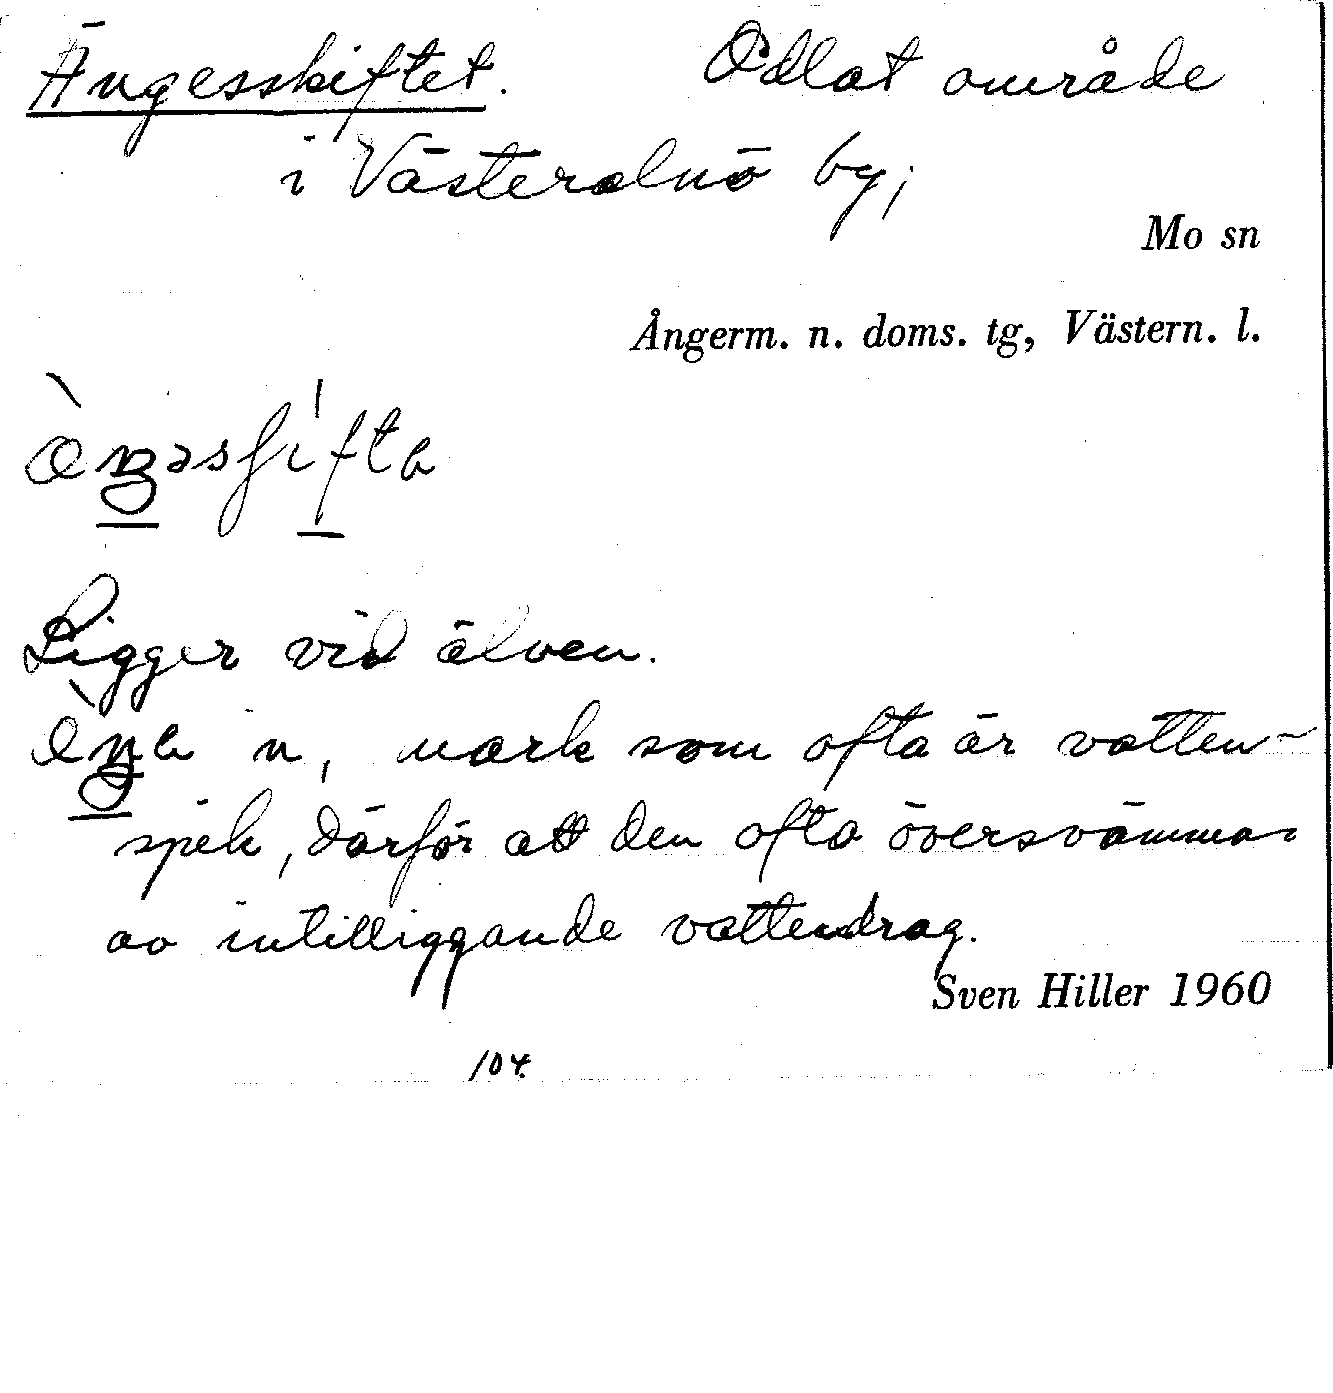 Ängesskiftet. Odlat område
i Västeralnö by;
Mo sn
Ångerm. n. doms. tg, Västern. l.
Ligger vid älven.
n, mark som ofta är vatten-
sjuk, därför att den ofta översvämmas
av intilliggande vattendrag.
Sven Hiller 1960
104.